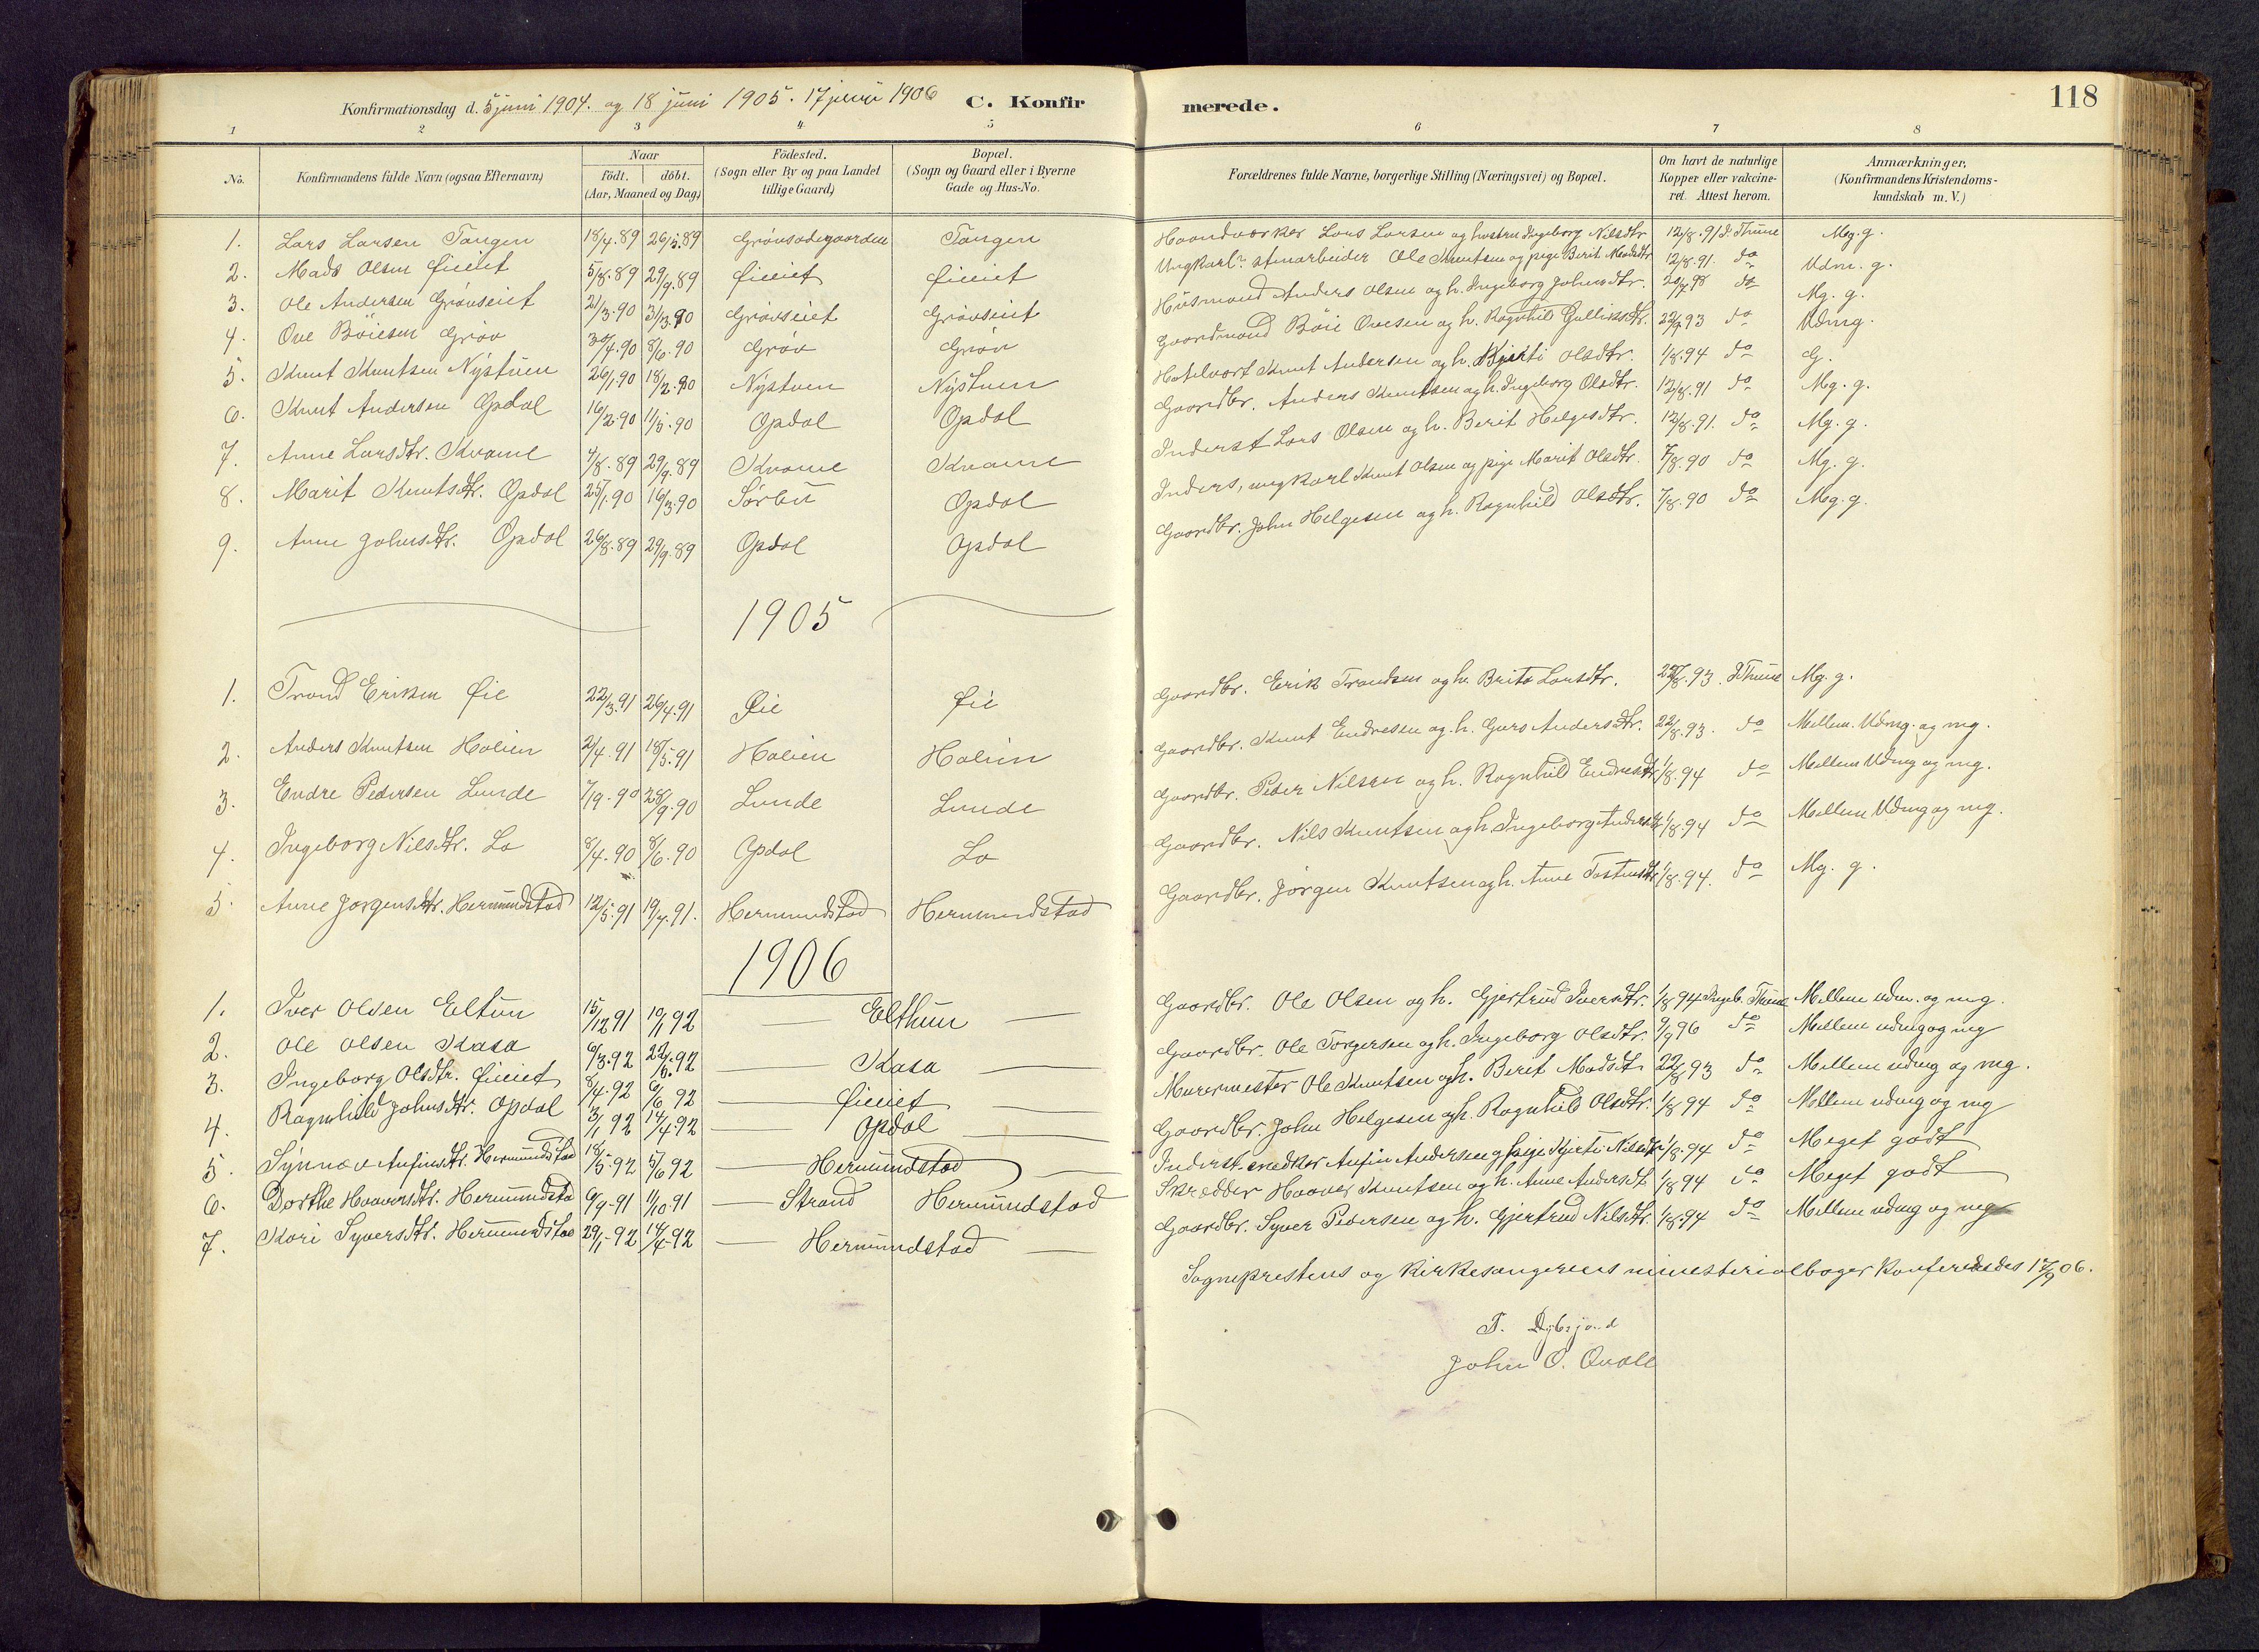 Konfirmationsdag d. 5 juni 1904. og 18 juni 1905. 17 juni 1906 C. Konfirmerede. 118
1 2 3 4 5 6 7 8
No. Konfirmandens fulde Navn (ogsaa Efternavn) Naar födt. döbt. (Aar, Maaned og Dag) Födested. (Sogn eller By og paa Landet tillige Gaard) Bopæl. (Sogn og Gaard eller i Byerne Gade og Hus-No. Forældrenes fulde Navne, borgerlige Stilling (Næringsvei) og Bopæl. Om havt de naturlige Kopper eller vakcineret. Attest herom. Anmærkninger, (Konfirmandens Kristendomskundskab m. V.)
1. Lars Larsen Tangen 18/4.89 26/5.89 Grøvsødegaarden Tangen Haandværker Lars Larsen og hustru Ingeborg Nilsdtr. 12/8.91 I. Thune Mg. g.
2. Mads Olsen Øieiet 5/8.89 29/9.89 Øieiet Øieiet Ungkarl stenarbeider Ole Knutsen og pige Berit Madsdtr. 12/8.91. do Udm. g.
3. Ole Andersen Grøvseiet 21/3.90 31/3.90 Grøvseiet Grøvseiet Husmand Anders Olsen og h. Ingeborg Johnsdtr. do Mg. g.
4. Ove Böiesen Grøv 30/4.90 8/6.90 Grøv Grøv Gaardmand Böie Ovesen og h. Ragnhild Gulliksdtr. 22/8.93 do Udmg.
5. Knut Knutsen Nystuen 26/1.90 18/2.90 Nystuen Nystuen Hotelvært Knut Andersen og h. Kjersti Olsdtr. 1/8.94 do G.
6. Knut Andersen Opdal 16/2.90 11/5.90 Opdal Opdal Gaardbr. Anders Knutsen og h. Ingeborg Olsdtr. 12/8.91 do Mg. g.
7. Anne Larsdtr. Kvame 4/8.89 29/9.89 Kvame Kvame Inderst Lars Olsen og h. Berit Helgesdtr. 12/8.91. do Mg. g.
8. Marit Knutsdtr. Opdal 25/1.90 16/3.90 Sørbu Opdal Inders, ungkarl Knut Olsen og pige Marit Olsdtr. 7/8.90 do Mg. g.
9. Anne Johnsdtr. Opdal 26/8.89 29/9.89 Opdal Opdal Gaardbr. John Helgesen og h. Ragnhild Olsdtr. 7/8.90 do Mg. g.
1905
1. Trond Eriksen Øie 22/3.91 26/4.91 Øie Øie Gaardbr. Erik Trondsen og h. Brita Larsdtr. 22/8.93. I. Thune Mg. g.
2. Anders Knutsen Holien 2/4.91 18/5.91 Holien Holien Gaardbr. Knut Endresen og h. Guro Andersdtr. 22/8.93. do Mellem Udmg. og mg.
3. Endre Pedersen Lunde 7/9.90 28/9.90 Lunde Lunde Gaardbr. Peder Nilsen og h. Ragnhild Endresdtr. 1/8.94 do Mellem Udmg og mg.
4. Ingeborg Nilsdtr. Lo 8/4.90 8/6.90 Opdal Lo Gaardbr. Nils Knutsen og h. Ingeborg Andersdtr. 1/8.94 do Mellem Udmg og mg.
5. Anne Jørgensdtr. Hermundstad 12/5.91 19/7.91. Hermundstad Hermundstad Gaardbr. Jørgen Knutsen og h. Anne Tostensdtr. 1/8.94. do Mg. g.
1906
1. Iver Olsen Eltun 15/12 91 10/1 92 — Elthun — Gaardbr. Ole Olsen og h. Gjertrud Iversdtr. 1/8 94 Ingeb. Thune Mellem udm. og mg.
2. Ole Olsen Kasa 6/3.92 22/5.92 — Kasa — Gaardbr. Ole Torgersen og h. Ingeborg Olsdtr. 9/9 96 do Mellem udmg og mg
3. Ingeborg Olsdtr. Øieiet 8/4.92 6/6 92 — Øieiet — Murermester Ole Knutsen og h. Berit Madsdtr 22/8 93 do Mellem udmg og mg.
4. Ragnhild Johnsdtr. Opdal 3/1 92 14/4.92 — Opdal — Gaardbr. John Helgesen og h. Ragnhild Olsdtr. 1/8 94 do Mellem udmg og mg
5. Synnøv Anfinsdtr. Hermundstad 18/5.92 5/6 92 — Hermundstad — Inderst. snedker Anfin Andersen og pige Kjersti Nilsdtr. 1/8.94 do Meget godt
6. Dorthe Haavorsdtr. Hermundsta 6/9-91 11/10.91 — Strand Hermundstad Skrædder Haavor Knutsen og h. Anne Andersdt. 1/8 94 do Meget godt
7. Kari Syversdtr. Hermundstad 29/1-92 14/4-92 — Hermundstad — Gaardbr. Syver Pedersen og h. Gjertrud Nilsdtr. 1/8.94 do Mellem udmg og mg
Sogneprestens og kirkesangerens ministerialbøger konfereredes 17/9 06.
T.
John O. Qvale